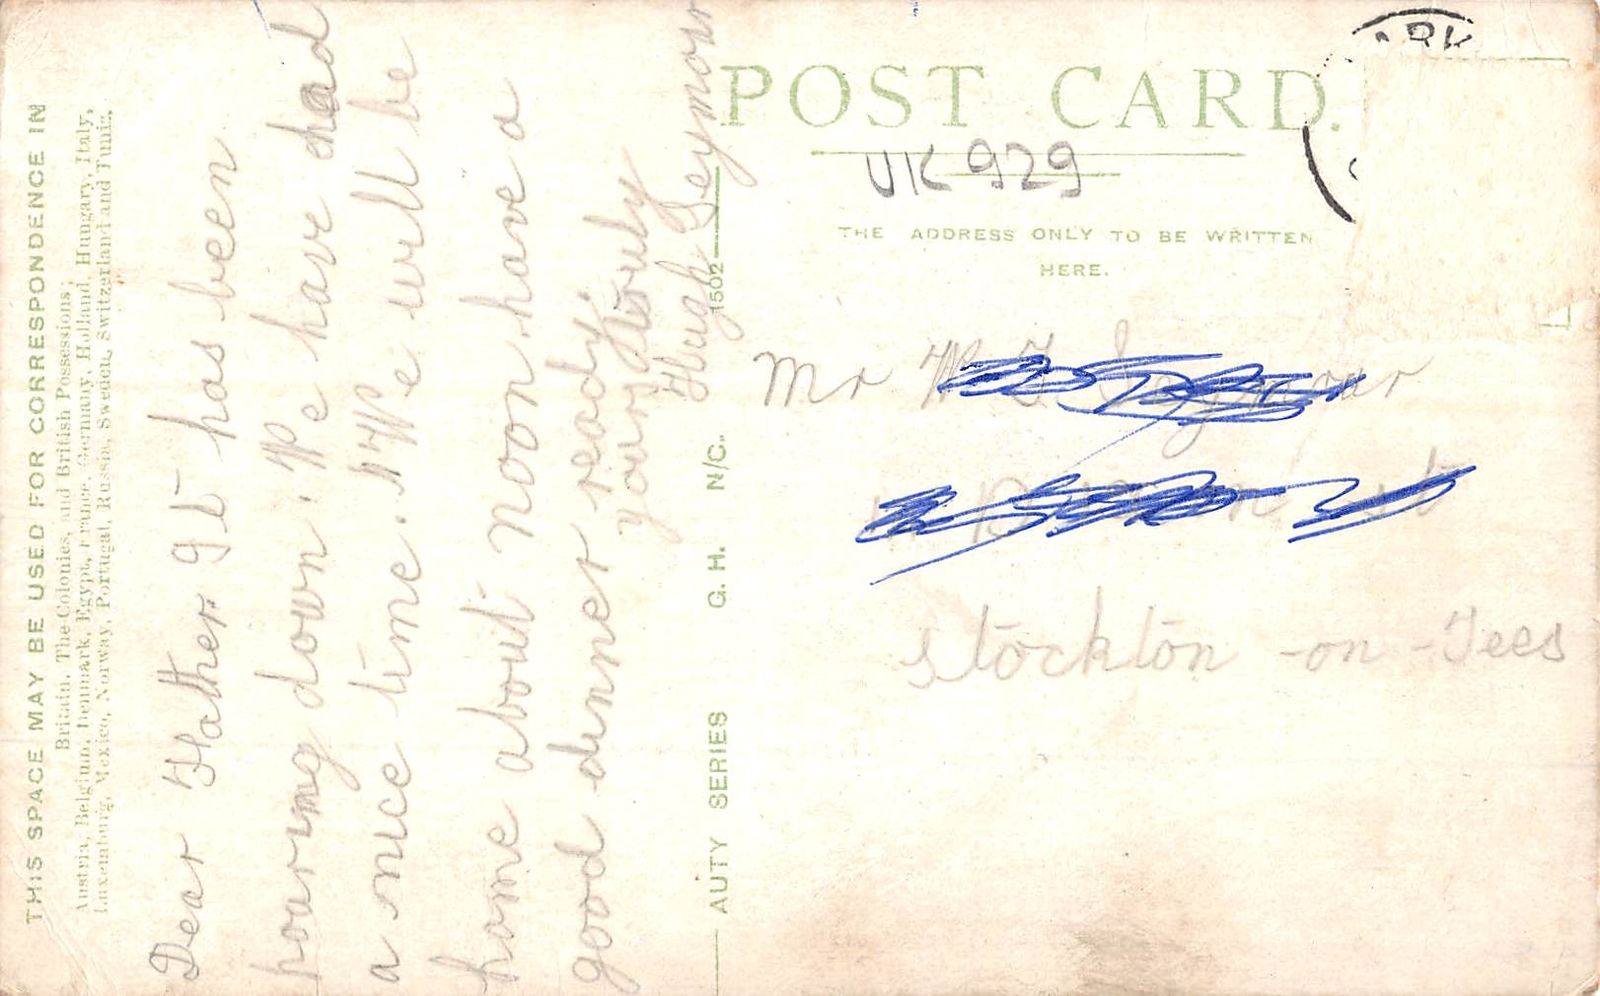 THIS SPACE MAY BE USED FOR CORRESPONDENCE IN
Britain, The Colonies, and British Possessions;
Austria, Belgium, Denmark, Egypt, France, Germany, Holland, Hungary, Italy,
Luxemburg, Mexico, Norway, Portugal, Russia, Sweden, Switzerland and Tunis.
Dear Father It has been
pouring down. We have had
a nice time. We will be
home about noon have a
good dinner ready.
yours truly
Hugh Seymour
AUTY SERIES G. H. N/C. 1502
POST CARD.
UK 929
THE ADDRESS ONLY TO BE WRITTEN
HERE.
Mr
Stockton-on-Tees